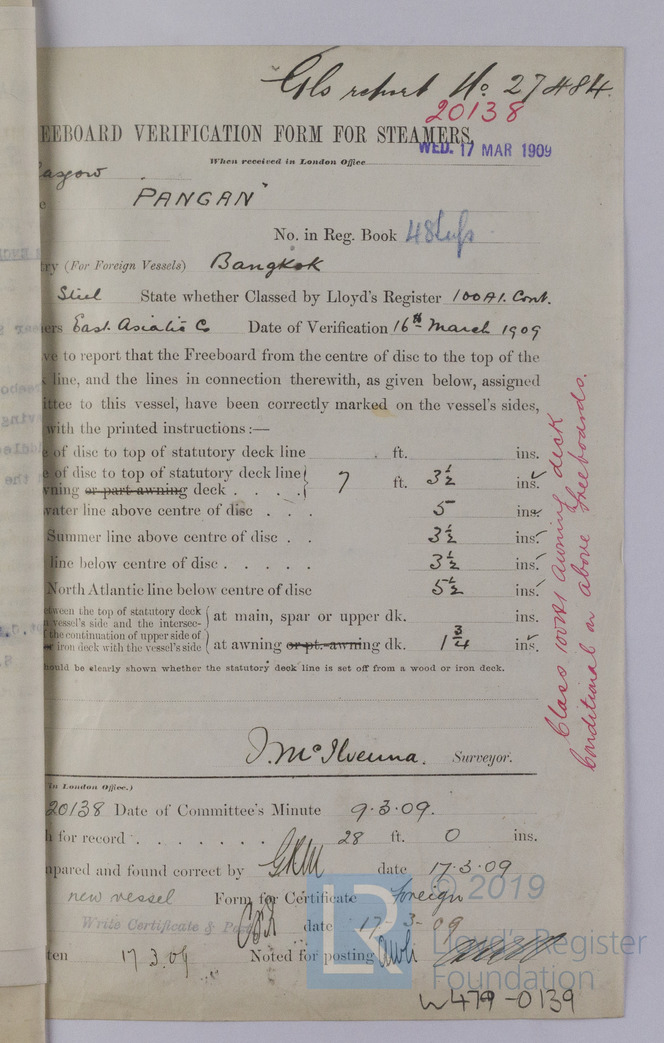 Gls report No. 27484.
20138
EEBOARD VERIFICATION FORM FOR STEAMERS.
WED. 17 MAR 1909
When received in London Office
asgow
PANGAN"
No. in Reg. Book 48 Sups
try (For Foreign Vessels) Bangkok
Steel State whether Classed by Lloyd's Register 100A1. Cont.
ers East Asiatic Co Date of Verification 16th March 1909
ve to report that the Freeboard from the centre of disc to the top of the
line, and the lines in connection therewith, as given below, assigned
ittee to this vessel, have been correctly marked on the vessel's sides,
with the printed instructions:—
e of disc to top of statutory deck line . ft. ins.
e of disc to top of statutory deck line
wning or part awning deck . . . . 7 ft. 3½ ins.
water line above centre of disc . . . 5 ins.
Summer line above centre of disc . . 3½ ins.
line below centre of disc . . . . . 3½ ins.
North Atlantic line below centre of disc 5½ ins.
etween the top of statutory deck
n vessel's side and the intersec- at main, spar or upper dk. ins.
f the continuation of upper side of
or iron deck with the vessel's side at awning or pt. awning dk. 1¾ ins.
hould be clearly shown whether the statutory deck line is set off from a wood or iron deck.
Class 100A1 awning deck
Conditional on above freeboards.
J. McIlvenna. Surveyor.
in London Office.)
20138 Date of Committee's Minute 9.3.09.
h for record . . . . . . . 28 ft. 0 ins.
mpared and found correct by GRM date 17.3.09
new vessel Form for Certificate foreign
Write Certificate & Post date 17-3-09
ten 17 3.09 Noted for posting
© 2019
LR
Lloyd's Register
Foundation
W479-0139